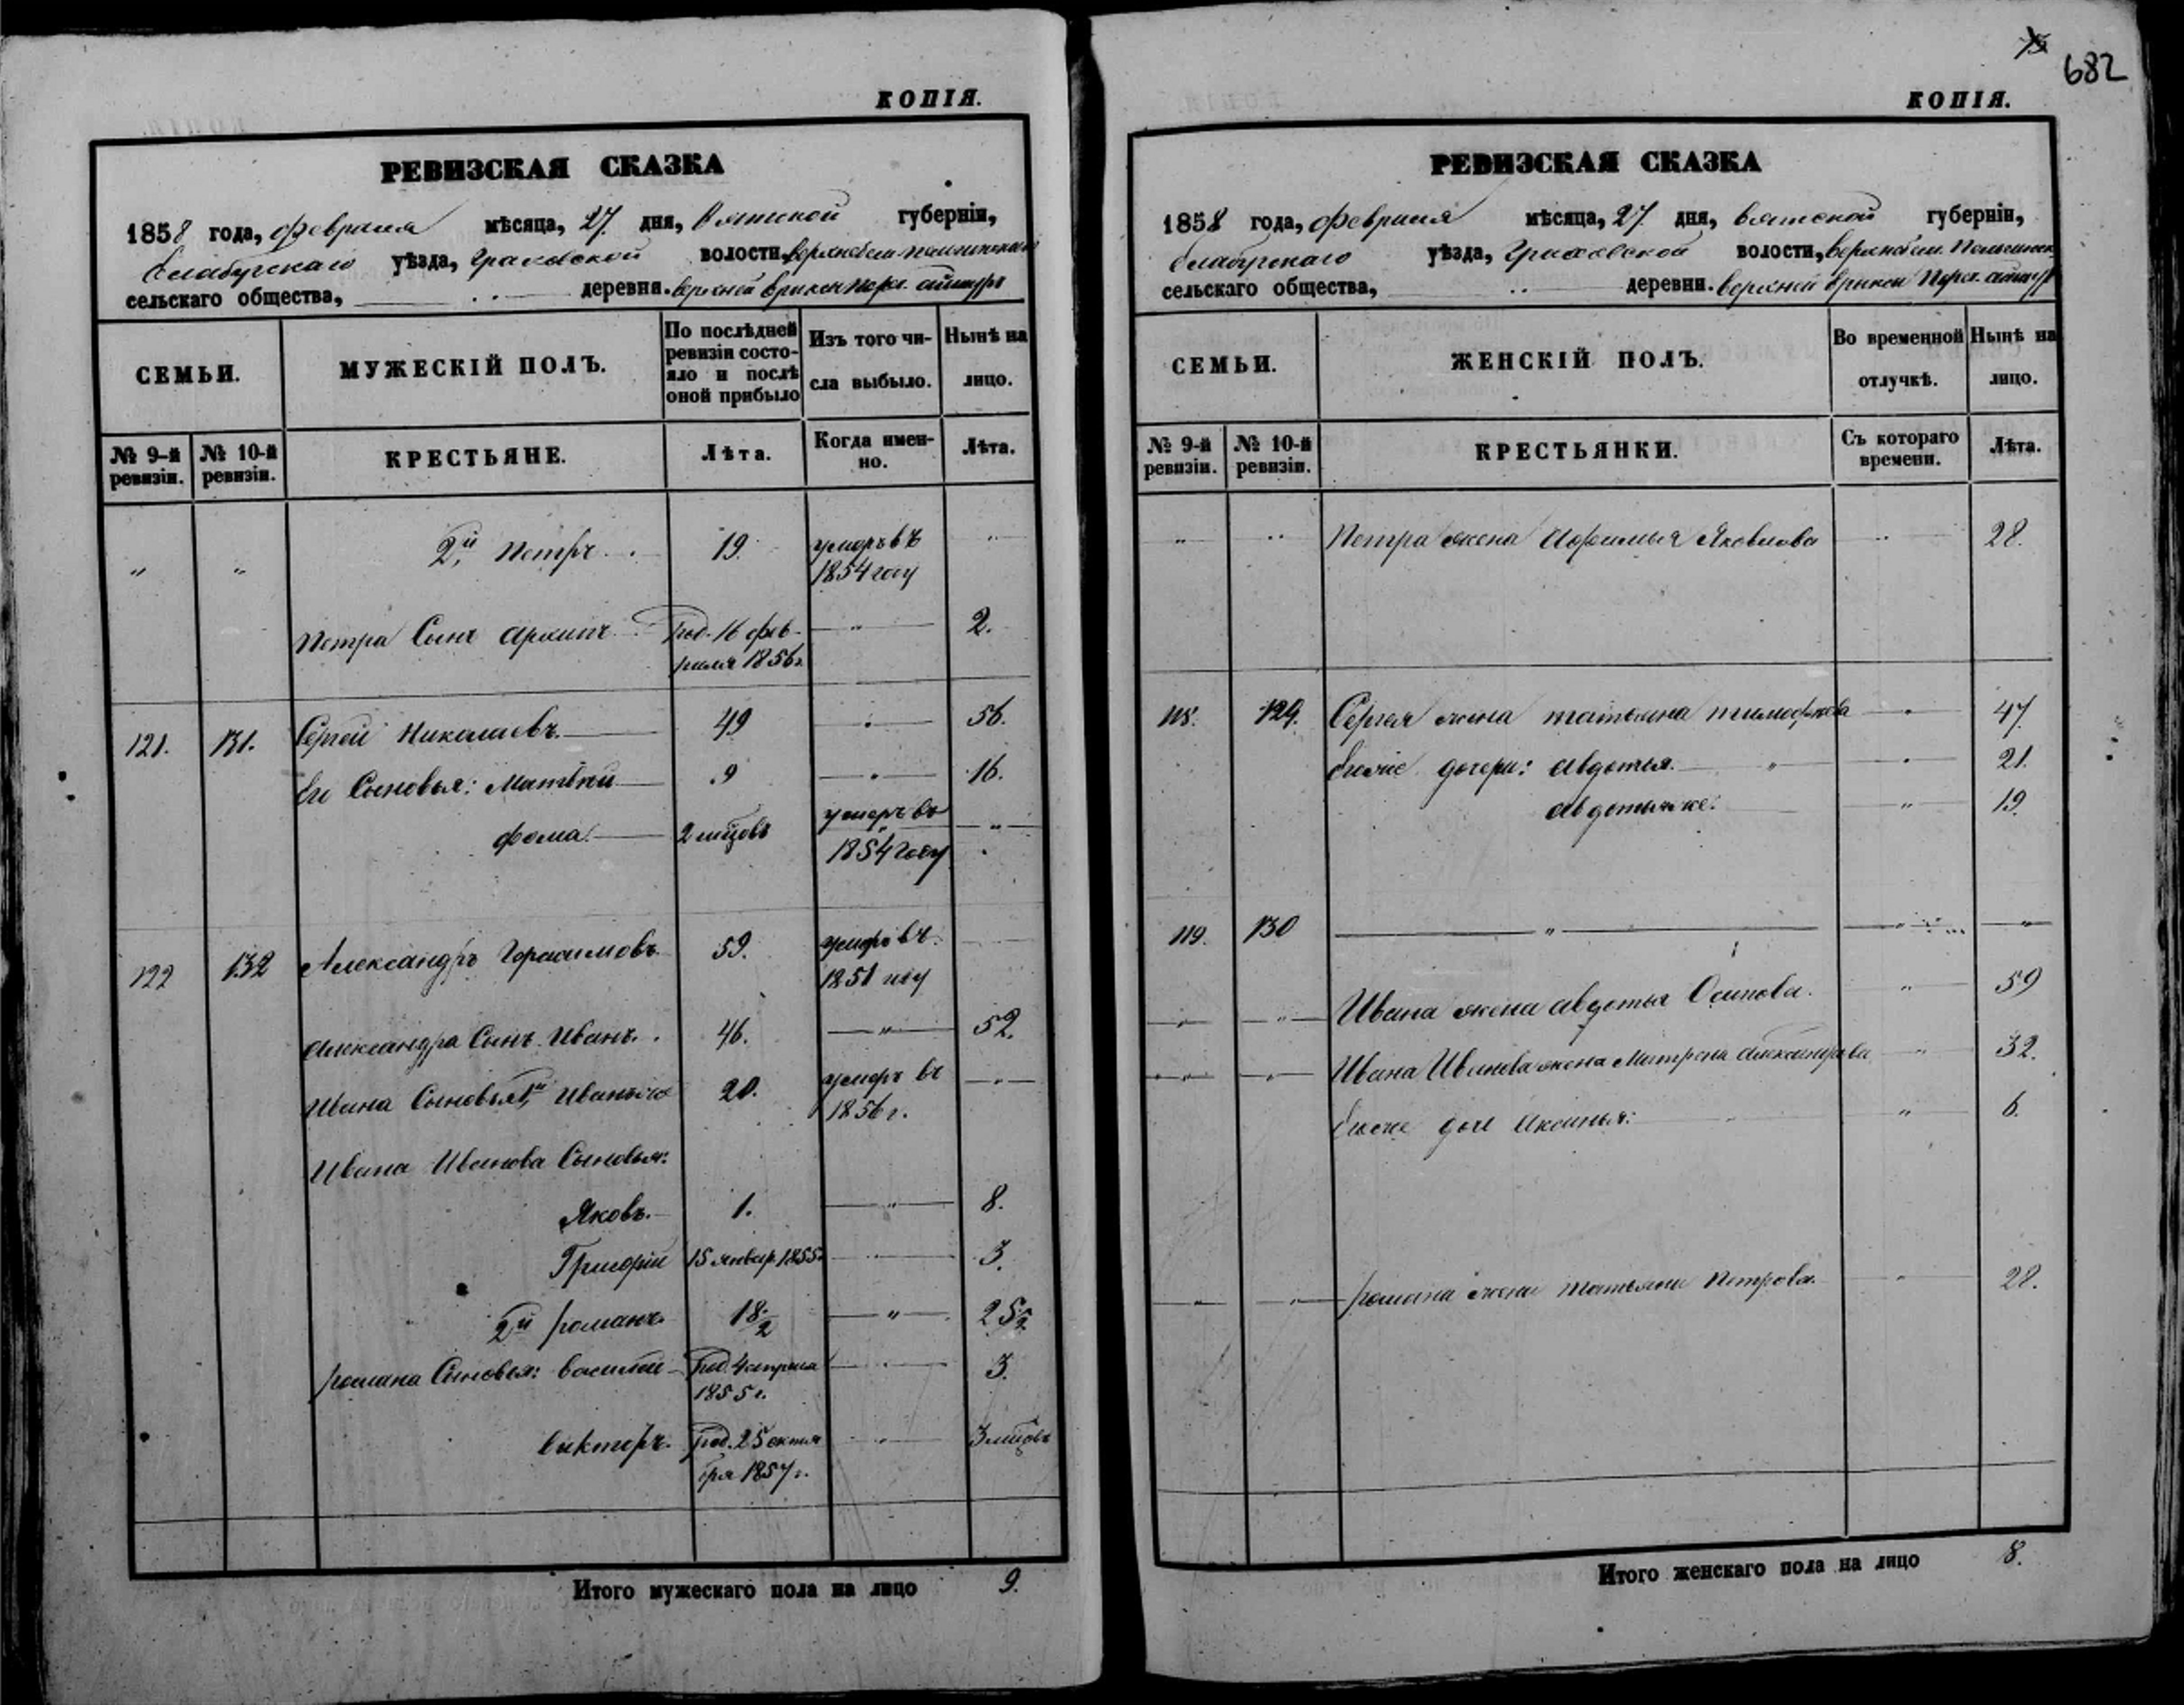 КОПІЯ.
РЕВИЗСКАЯ СКАЗКА
1858 года, февраля мѣсяца, 27 дня, Вятской губерніи,
Елабугскаго уѣзда, Граховской волости,
сельскаго общества, деревни. верхней
СЕМЬИ.
МУЖЕСКІЙ ПОЛЪ.
По послѣдней ревизіи состо-
яло и послѣ оной прибыло
Изъ того чи-
сла выбыло.
Нынѣ на
лицо.
№ 9-й ревизіи.
№ 10-й ревизіи.
КРЕСТЬЯНЕ.
Лѣта.
Когда имен-
но.
Лѣта.
" " 2й Петръ 19. умеръ въ "
1854 году
Петра Сынъ Архипъ Род. 16 фев- " 2.
раля 1856 г.
121. 131. Сергей Николаевъ. 49 " 56.
Его Сыновья: Матвей 9 " 16.
фома. 2 мцовъ умеръ въ "
1854 году
122 132 Александръ Герасимовъ 59. умеръ въ
1851 году
Александра Сынъ Иванъ. 46. " 52.
Ивана Сыновья 1й Иванъ 20. умеръ въ "
1856 г.
Ивана Иванова Сыновья:
Яковъ. 1. " 8.
Григорій 15 январ. 1855 " 3.
2й романъ 18 1/2 " 25 1/2
романа Сыновья: василей Род. 4 апреля " 3.
1855 г.
викторъ. Род. 25 октя- " 3 мцовъ
бря 1857 г.
Итого мужескаго пола на лицо 9.
75
682
КОПІЯ.
РЕВИЗСКАЯ СКАЗКА
1858 года, февраля мѣсяца, 27 дня, вятской губерніи,
елабугскаго уѣзда, Граховской волости,
сельскаго общества, деревни. верхней
СЕМЬИ.
ЖЕНСКІЙ ПОЛЪ.
Во временной
отлучкѣ.
Нынѣ на
лицо.
№ 9-й ревизіи.
№ 10-й ревизіи.
КРЕСТЬЯНКИ.
Съ котораго
времени.
Лѣта.
" " Петра жена Яковлова " 28.
118. 129. Сергея жена татьяна тимофеева " 47
Егоже дочери: авдотья. " 21.
авдотьяже. " 19.
119. 130 " " "
" " Ивана жена авдотья Осипова. " 59
" " Ивана Иванова жена Матрена александрова " 32.
Егоже дочь Аксинья: " 6.
" " романа жена татьяна Петрова. " 28.
Итого женскаго пола на лицо 8.